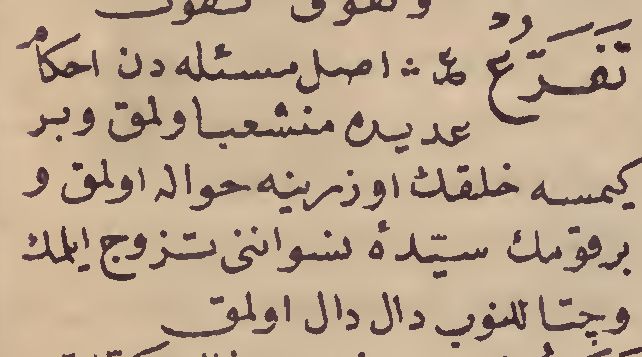 تَفَرُّعٌ ع :: اصل مسئله دن احكام
عديده منشعب اولمق وبر
كيمسه خلقك اوزرينه حواله اولمق و
برقومك سيّدهٔ نسواننى تزوج ايلمك
وچتاللنوب دال دال اولمق